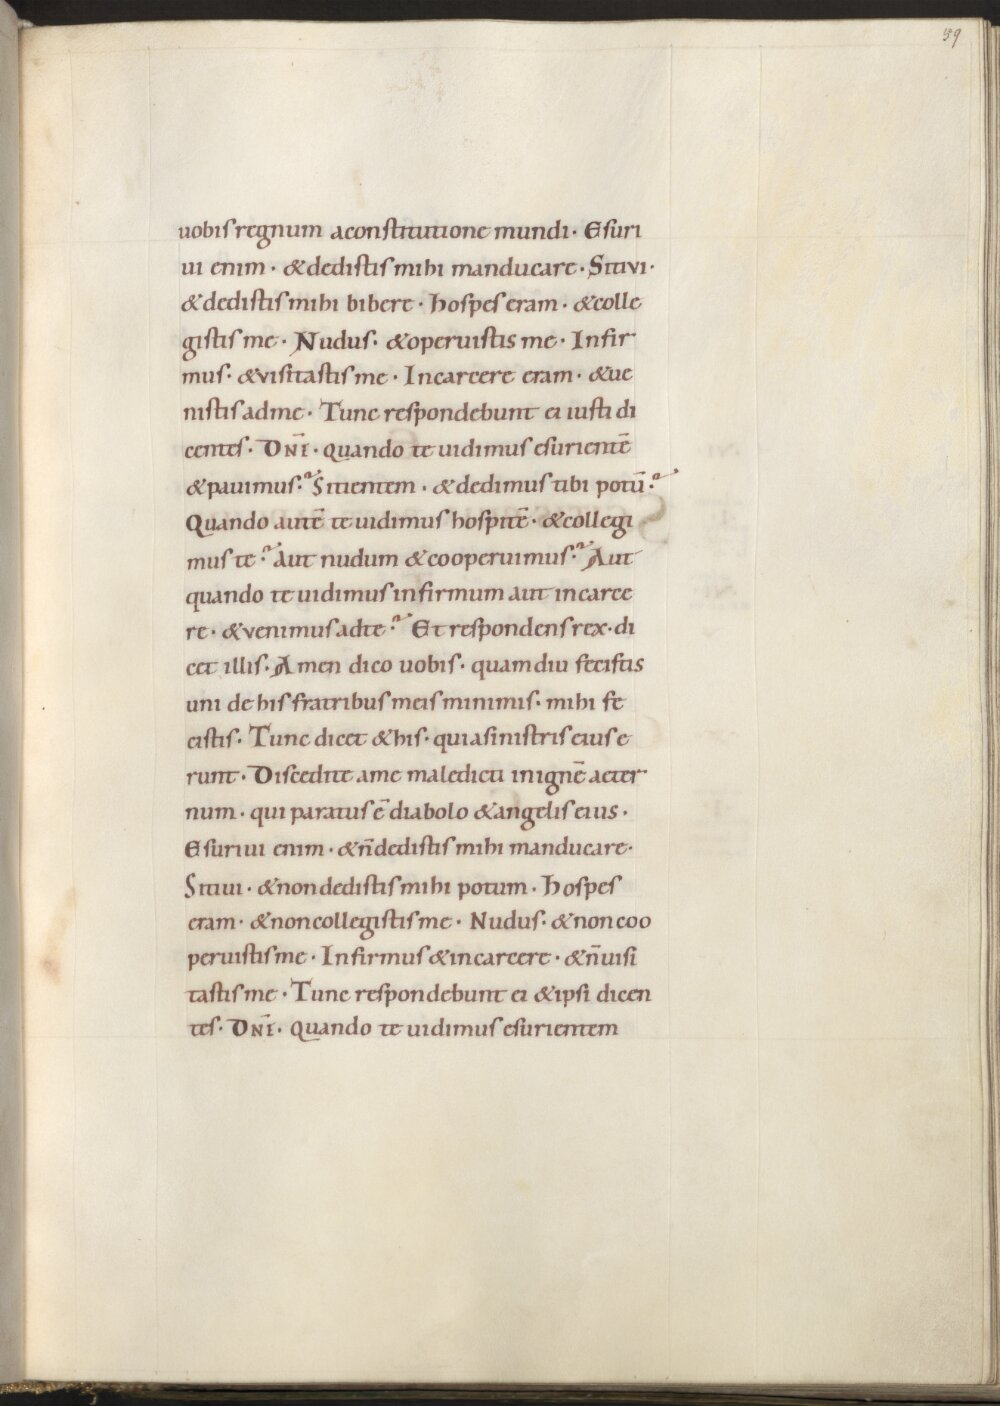 59
uobis regnum aconstitutione mundi · Esuri
ui enim · & dedistis mihi manducare · Sitivi ·
& dedistis mihi bibere · hospes eram · & colle
gistis me · Nudus · & operuistis me · Infir
mus · & visitastis me · Incarcere eram · & ue
nistis adme · Tunc respondebunt ei iusti di
centes · Dn̄e · quando te uidimus esurientē
& pauimus? Sitientem · & dedimus tibi potū?
Quando autē te uidimus hospitē · & collegi
mus te? Aut nudum & cooperuimus? Aut
quando te uidimus infirmum aut incarce
re · & venimus adte? Et respondens rex · di
cet illis · Amen dico uobis · quamdiu fecistis
uni de his fratribus meis minimis · mihi fe
cistis · Tunc dicet & his · qui asinistris eius e
runt · Discedite ame maledicti inignē aeter
num · qui paratus ē diabolo & angelis eius ·
Esuriui enim · & n̄ dedistis mihi manducare ·
Sitiui · & non dedistis mihi potum · hospes
eram · & non collegistis me · Nudus · & non coo
peruistis me · Infirmus & incarcere · & n̄ uisi
tastis me · Tunc respondebunt ei & ipsi dicen
tes · Dn̄e · quando te uidimus esurientem